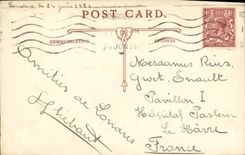 Londres le 24 juin 1926
POST CARD.
COMMUNICATION
ADDRESS
24 JUN 26
Mesdames Rius,
Gwet. Enault
Pavillon I
Hôpital Pasteur
Le Hâvre
France
Amitiés de Londres